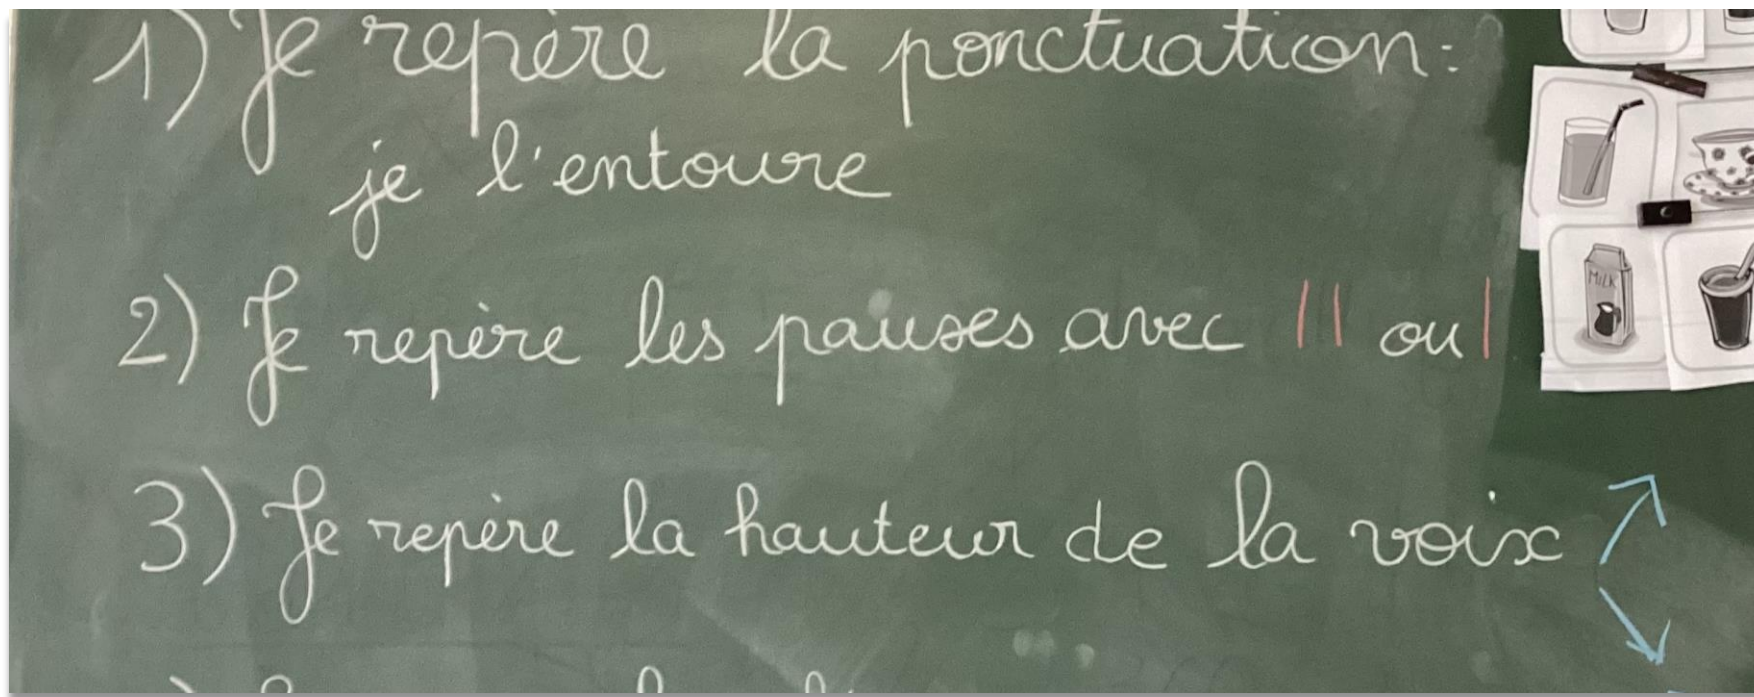 1) Je repère la ponctuation:
je l'entoure
2) Je repère les pauses avec || ou |
3) Je repère la hauteur de la voix
MILK